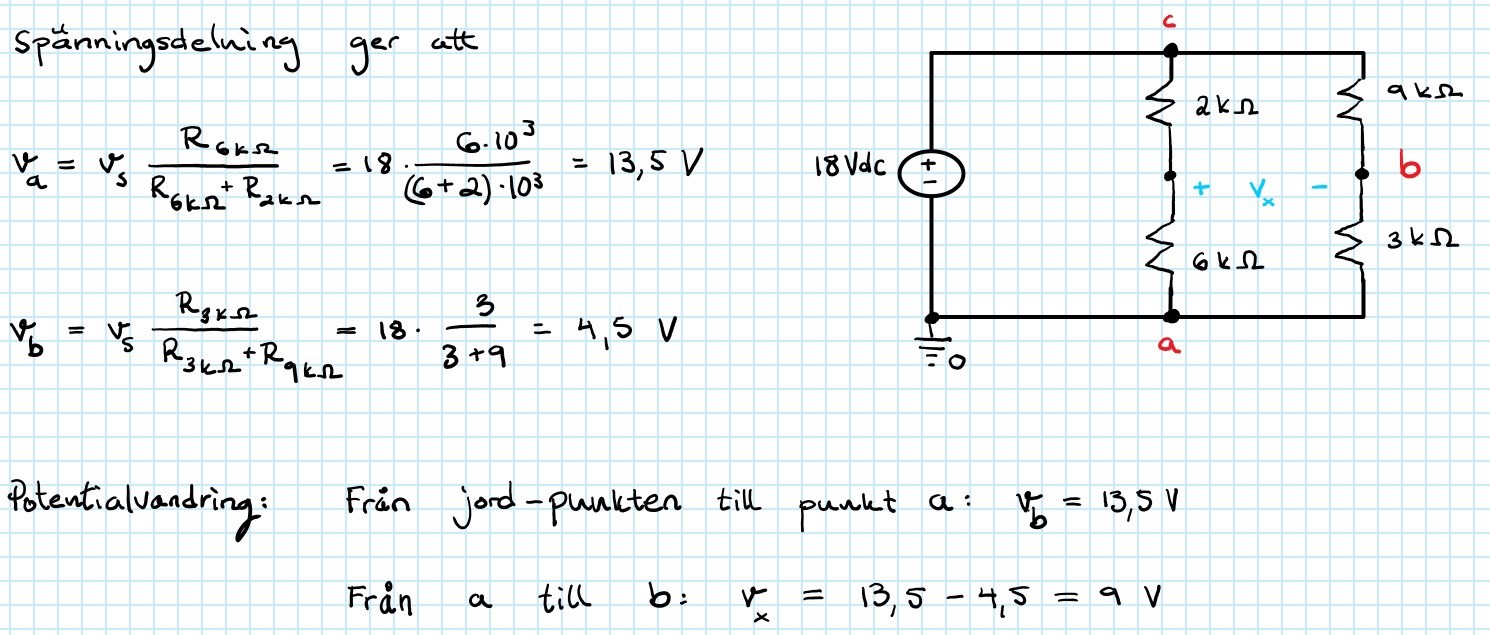 Spänningsdelning ger att
v_a = v_s R_6kΩ / (R_6kΩ + R_2kΩ) = 18 · 6·10³ / ((6+2)·10³) = 13,5 V
v_b = v_s R_3kΩ / (R_3kΩ + R_9kΩ) = 18 · 3 / (3+9) = 4,5 V
c
2kΩ
9kΩ
18 Vdc
+
−
+ v_x −
b
6kΩ
3kΩ
0
a
Potentialvandring: Från jord-punkten till punkt a: v_b = 13,5 V
Från a till b: v_x = 13,5 − 4,5 = 9 V